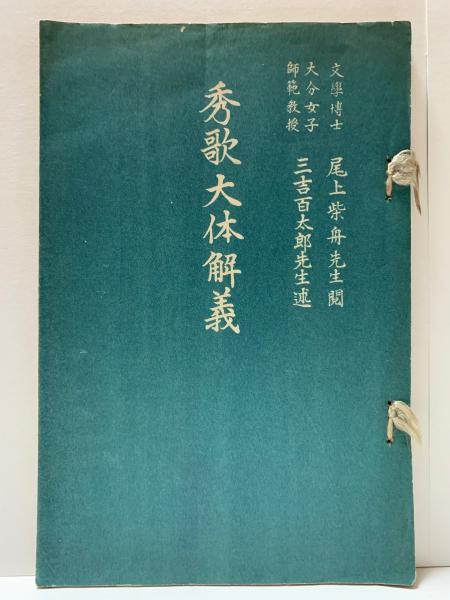 文學博士 尾上柴舟先生閲
大分女子師範教授 三吉百太郎先生述
秀歌大体解義